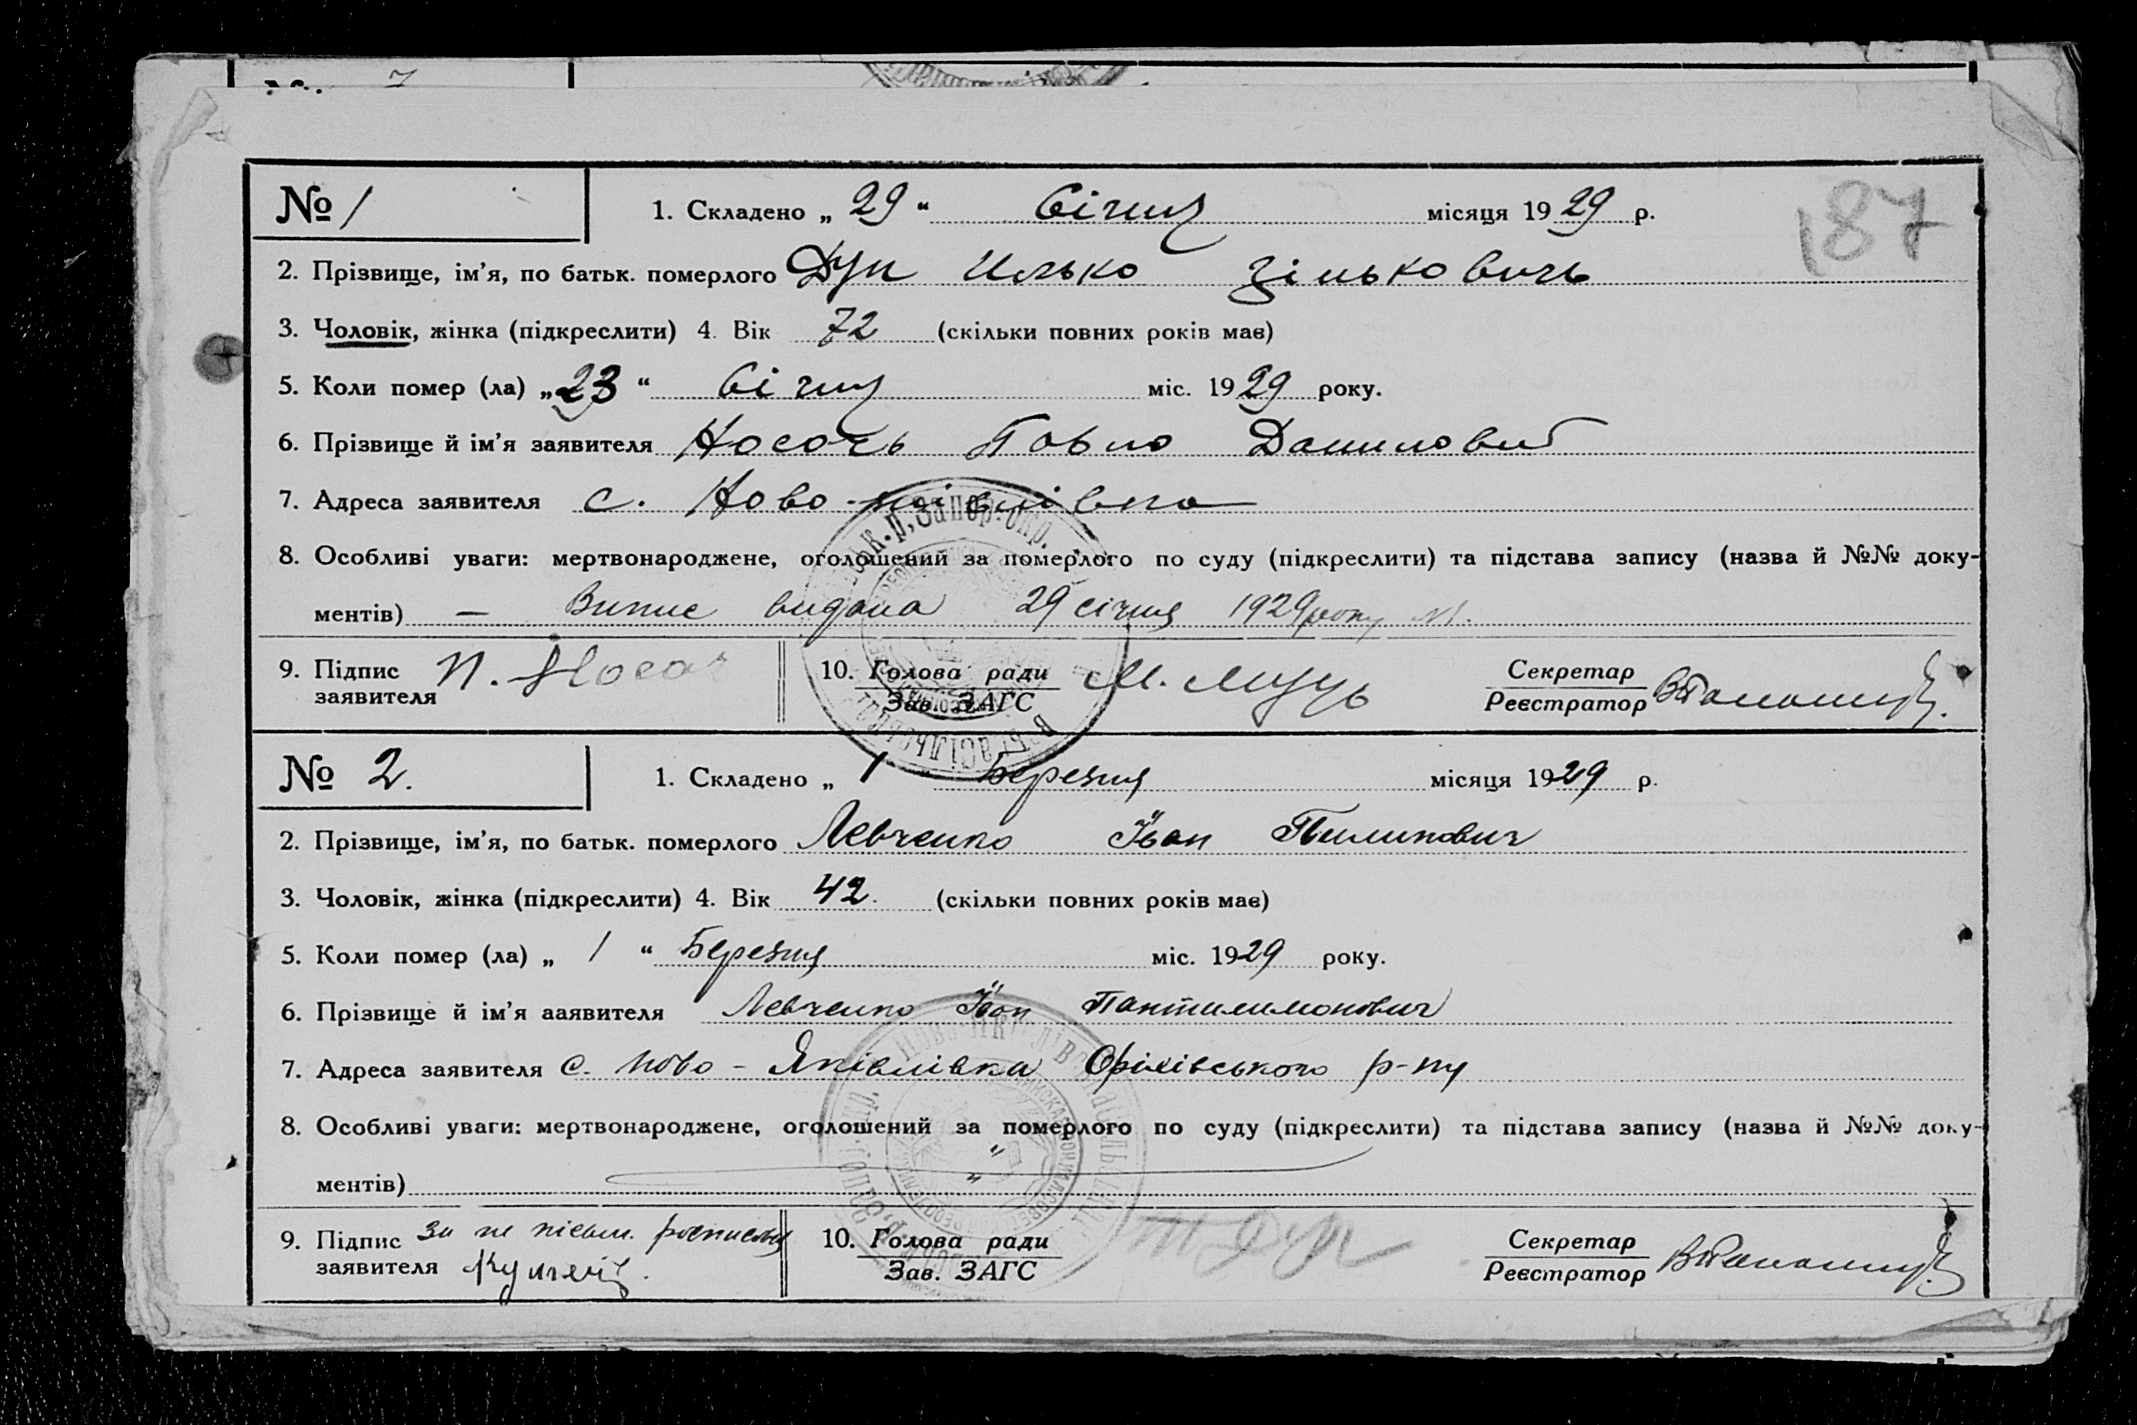 187
№ 1
1. Складено „ 29 “ Січня місяця 1929 р.
2. Прізвище, ім’я, по батьк. померлого Дуп Илько Зіньковичь
3. Чоловік, жінка (підкреслити) 4. Вік 72 (скільки повних років має)
5. Коли помер (ла) „23“ Січня міс. 1929 року.
6. Прізвище й ім’я заявителя Носачь Павло Данилович
7. Адреса заявителя с. Ново-
8. Особливі уваги: мертвонароджене, оголошений за померлого по суду (підкреслити) та підстава запису (назва й №№ доку-
ментів) — Випис видана 29 січня 1929 року №1.
9. Підпис заявителя П. Носач
10. Голова ради М.
Зав. ЗАГС
Секретар
Реєстратор
№ 2.
1. Складено „ 1 Березня місяця 1929 р.
2. Прізвище, ім’я, по батьк. померлого Левченко Іван Пилипович
3. Чоловік, жінка (підкреслити) 4. Вік 42. (скільки повних років має)
5. Коли помер (ла) „ 1 “ Березня міс. 1929 року.
6. Прізвище й ім’я ааявителя Левченко Іван Пантилимонович
7. Адреса заявителя с. Ново - Яківлівка Оріхівського р-ну
8. Особливі уваги: мертвонароджене, оголошений за померлого по суду (підкреслити) та підстава запису (назва й №№ доку-
ментів)
9. Підпис заявителя за не письм.
10. Голова ради
Зав. ЗАГС
Секретар
Реєстратор